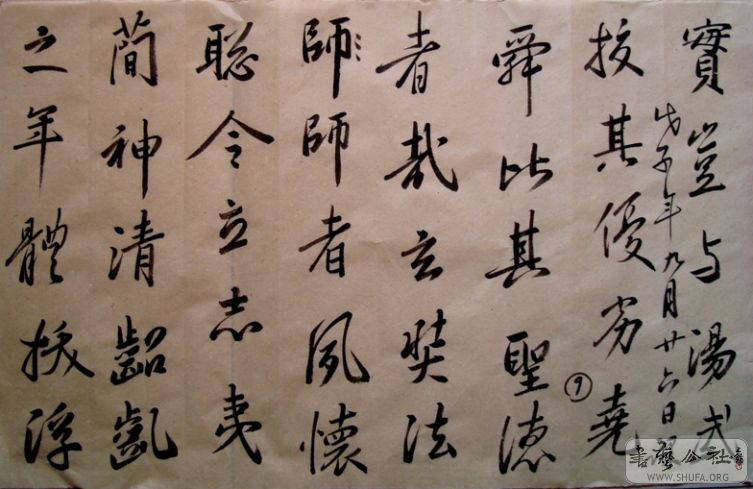 實豈与湯武
戊子年九月廿六日
挍其優劣堯
舜比其聖徳
者哉玄奘法
師師者夙懷
聡令立志夷
蕳神清齠齔
之年體拔浮
書藝公社
WWW.SHUFA.ORG